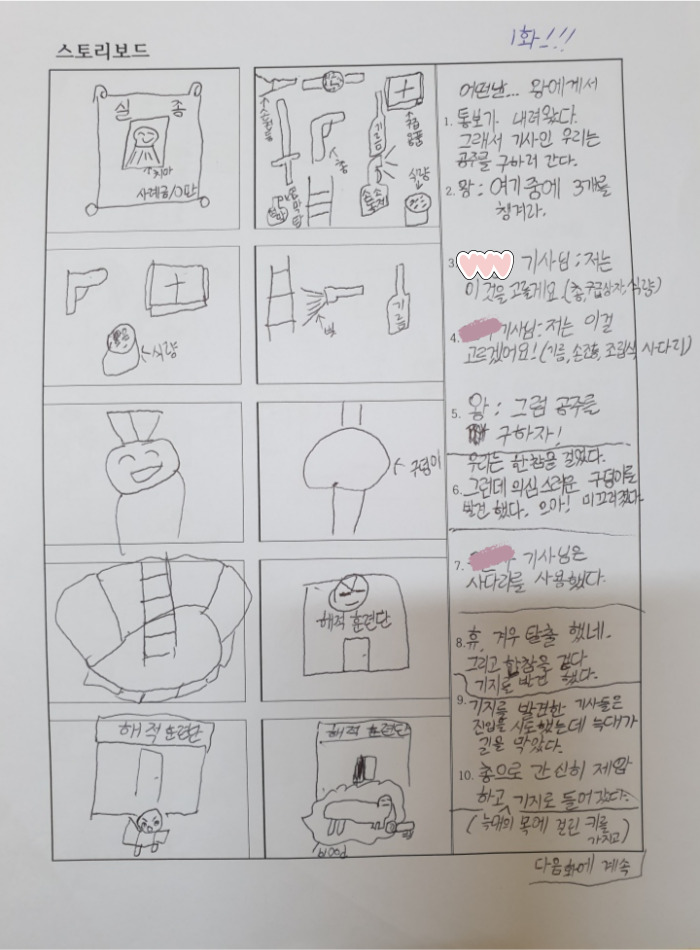 1화!!!
스토리보드
실 종
치마
사례금 10판
손전등
총
기름
구급용품
식량
어떤날... 왕에게서
1. 통보가 내려왔다.
그래서 기사인 우리는
공주를 구하러 간다.
2. 왕 : 여기중에 3개를
챙겨라.
식량
빛
기름
3. 기사님 : 저는
이것을 고를게요 (총, 구급상자, 식량)
4. 기사님 : 저는 이걸
고르겠어요! (기름, 손전등, 조립식 사다리)
구덩이
5. 왕 : 그럼 공주를
구하자!
우리는 한참을 걸었다.
6. 그런데 의심스러운 구덩이를
발견했다. 으아! 미끄러졌다.
해적 훈련단
7. 기사님은
사다리를 사용했다.
8. 휴, 겨우 탈출 했네.
그리고 한참을 걷다
기지를 발견 했다.
해적 훈련단
해적 훈련단
9. 기지를 발견한 기사들은
진입을 시도했는데 늑대가
길을 막았다.
10. 총으로 간신히 제압
하고 기지로 들어갔다.
(늑대의 목에 걸린 키를
가지고)
다음화에 계속